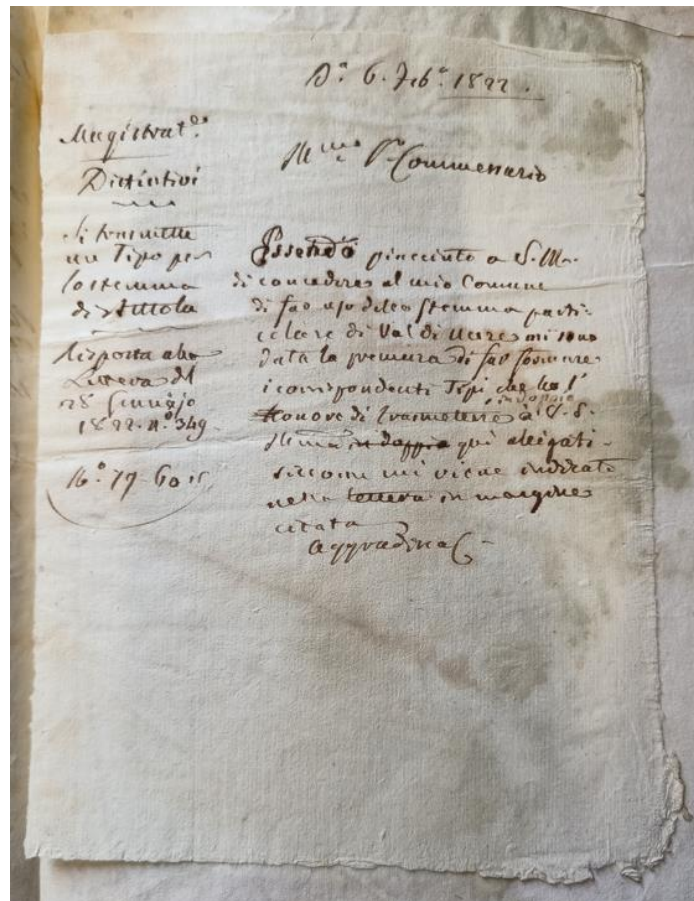 D.ª 6. Feb.º 1822.
Magistrat.º
Distintivi
Si trasmette
un Tipo per
lo stemma
di
Risposta alla
Lettera del
28 Gennajo
1822. N.º 349.
N.º 79
Ill.mo S.r Commessario
Essendo piacciuto a S. M.
di concedere al mio Comune
di far uso dello stemma parti-
colare di Val di mi sono
data la premura di far formare
i corrispondenti Tipi che ho l'
in doppio
onore di trasmettere a V. S.
Ill.ma in doppio quì allegati
siccome mi viene indicato
nella lettera in margine
citata
Aggradisca